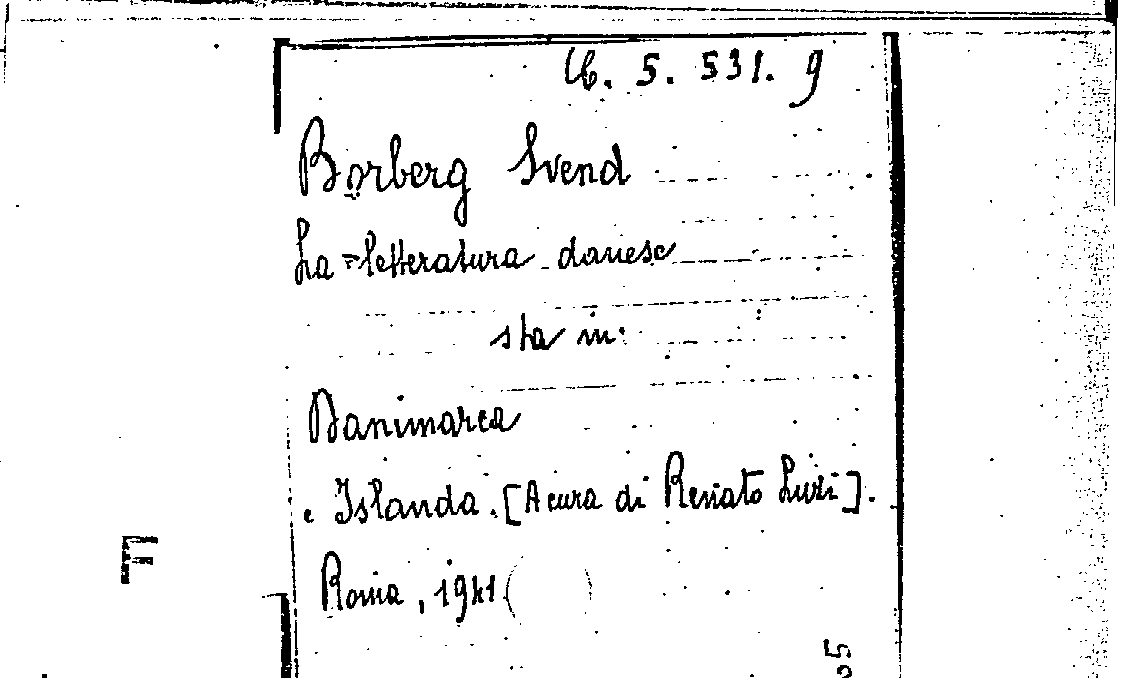 5. 531. 9
Borberg Svend
La letteratura danese
sta in:
Danimarca
e Islanda. [A cura di Renato].
Roma, 1941 ( )
F